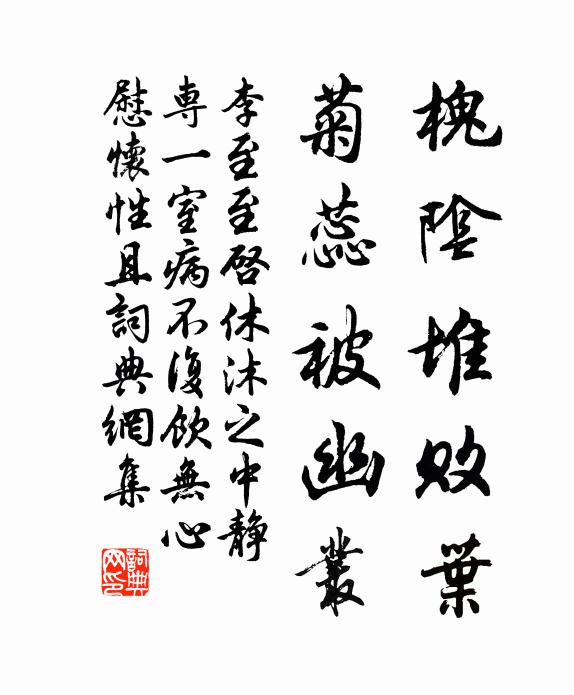 槐陰堆敗葉
菊蕊被幽叢
李至至啓休沐之中靜
專一室病不復飲無心
慰懷性且詞典網集
詞典
网印